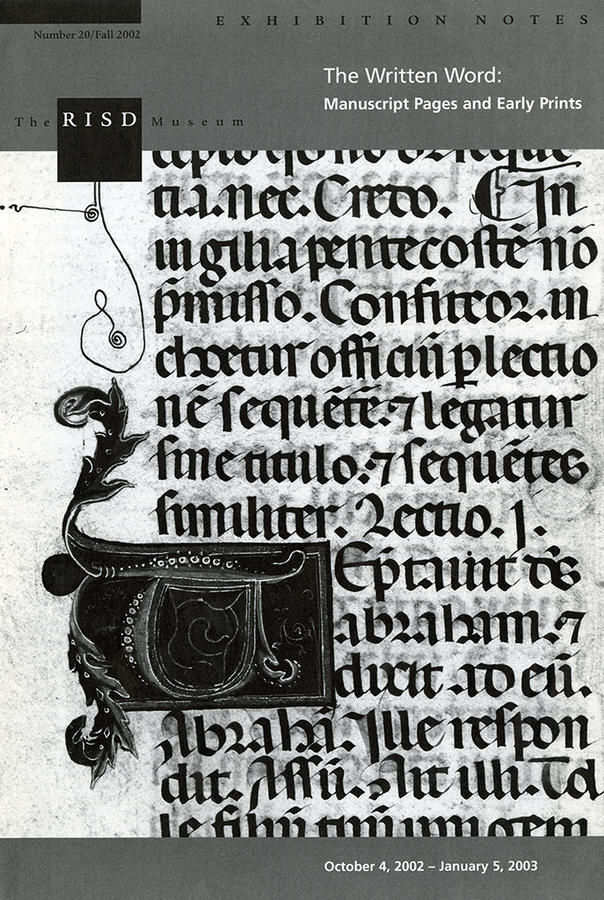 Number 20/Fall 2002
EXHIBITION NOTES
The Written Word:
Manuscript Pages and Early Prints
The RISD Museum
tia.nec.Credo. In
uigilia pentecostē nō
p̄misso.Confiteor.in
choetur officiū ꝑ lectio
nē sequētē:⁊ legatur
sine titulo:⁊ sequētes
similiter. Lectio.j.
TEp̄tauit de᷒s
abraham.⁊
dixit ad eū.
Abrahā.Ille respon
dit. Assū. Ait illi. Tol
le filiū tuū unigem
October 4, 2002 – January 5, 2003